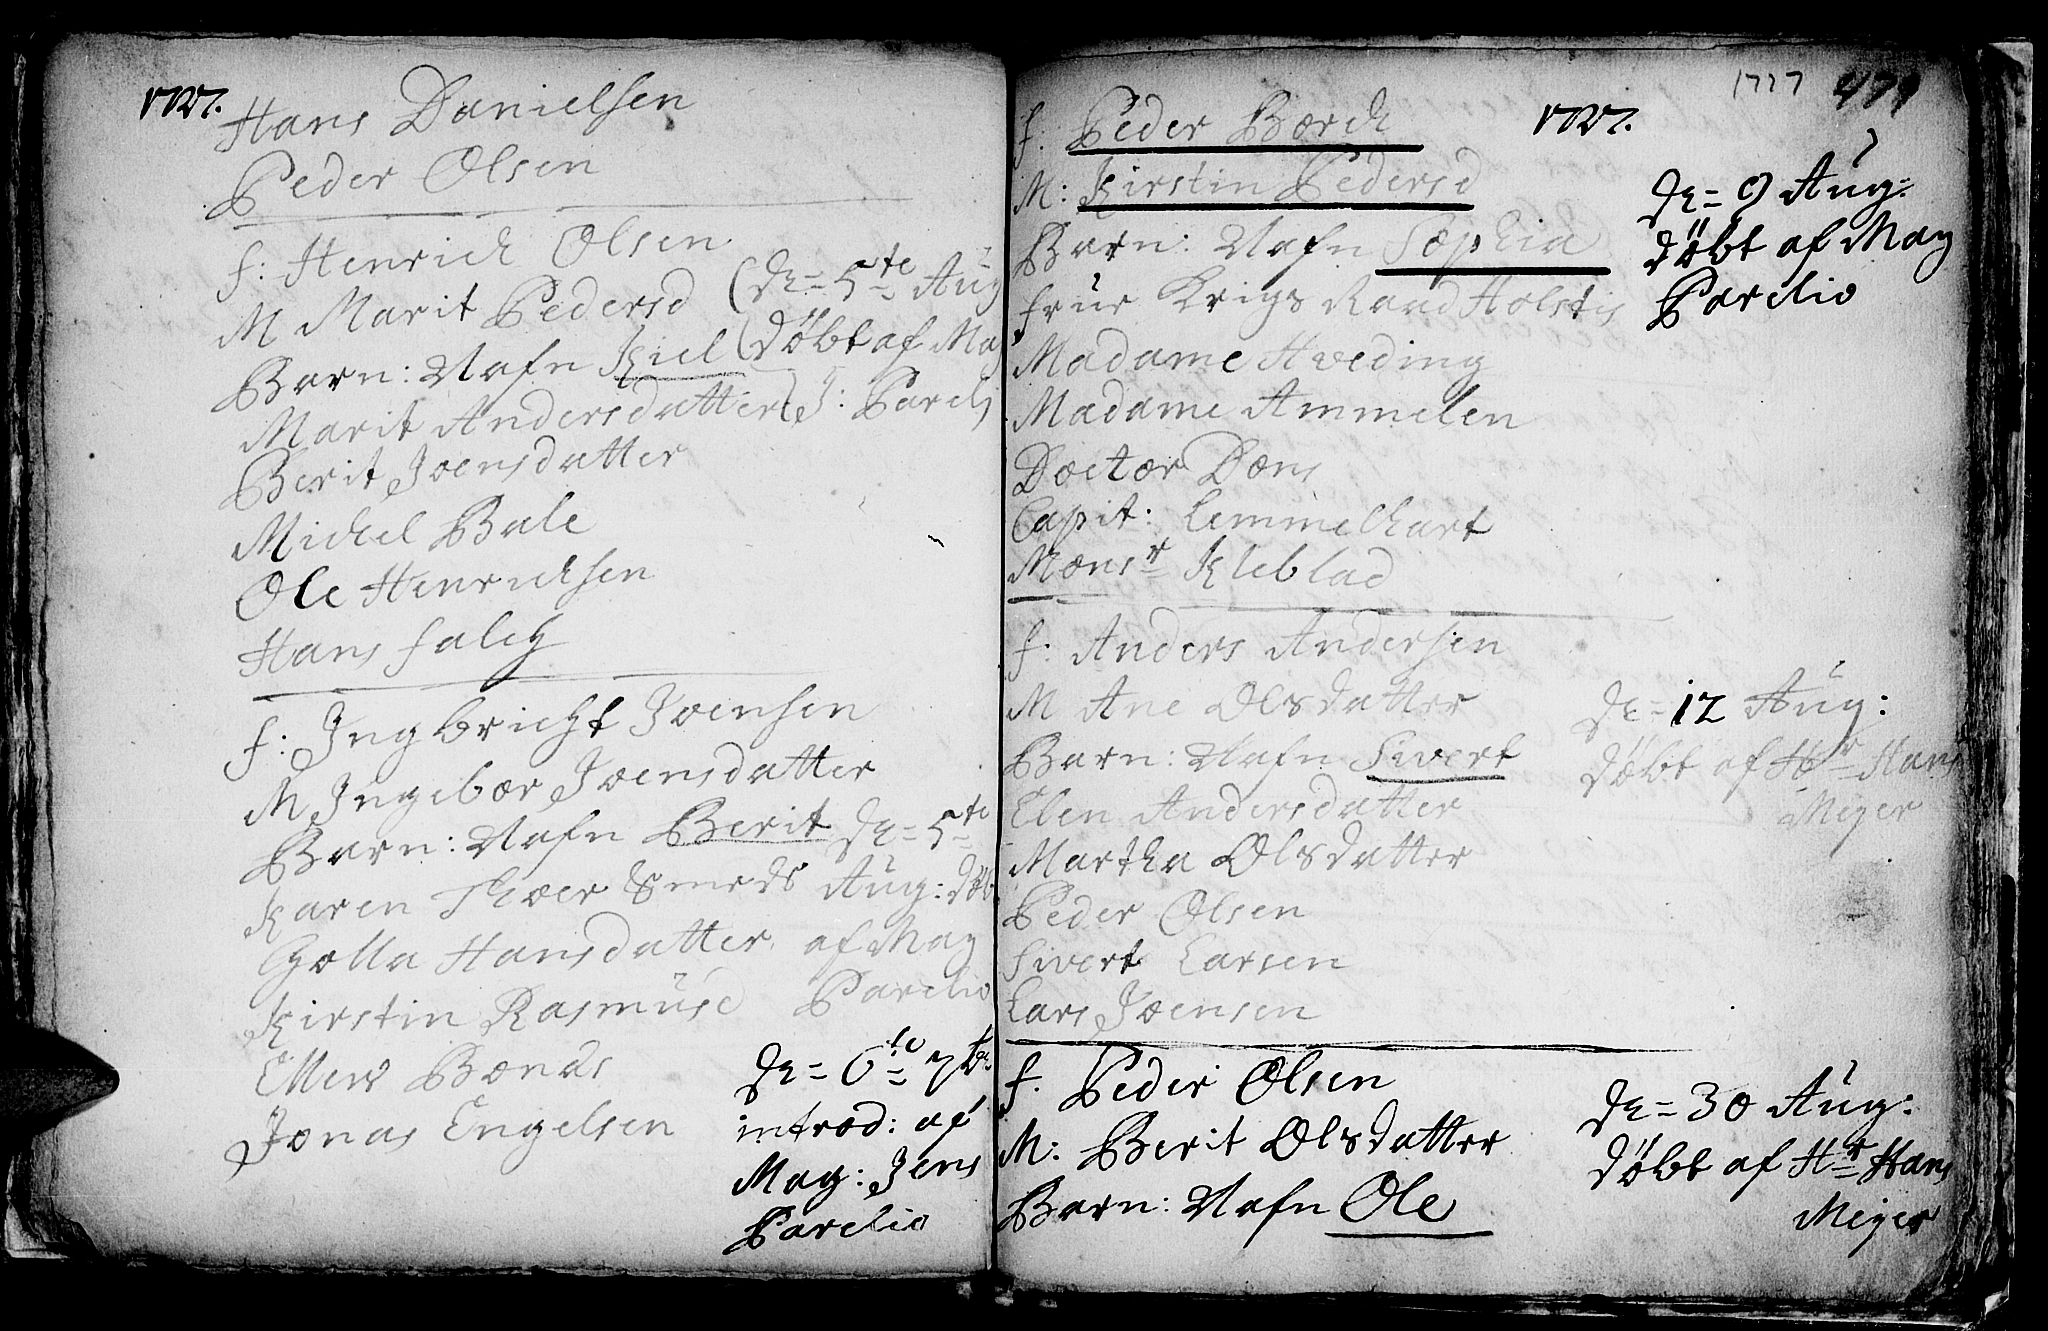 1727.
Hans Danielsen
Peder Olsen
f: Henrich Olsen
M Marit Pedersd (de= 5te Aug
Barn: Nafn Kiel (döbt af Mag
Marit Andersdatter) J: Pareli
Berit Joensdatter
Michel Bale
Ole Henrichsen
Hans falch
f: Ingbricht Joensen
M Ingebor Joensdatter
Barn: Nafn Berit de= 5te
Karen Thoer Smeds Aug: döb
Golla Hansdatter, af Mag
Kirstin Rasmusd Parelio
Ellen Bonds
Jonas Engelsen
de= 6te 7br:
introd: af
Mag: Jens
Parelio
1727 479
1727.
f. Peder Borch
M: Kirstin Pedersd
Barn: Nafn Sophia
frue Krigs Raad Holstis
Madame Hveding
Madame Ammelen
Doctor Dons
Capit: Lemmelhart
Monsr Kleblad
de= 9 Aug:
döbt af Mag
Parelio
f: Anders Andersen
M Ane Olsdatter
Barn: Nafn Sivert
Elen Andersdatter
Martha Olsdatter
Peder Olsen
Sivert Larsen
Lars Joensen
de= 12 Aug:
döbt af Hr Hans
Meyer
f. Peder Olsen
M: Berit Olsdatter
Barn: Nafn Ole
de= 30 Aug:
döbt af Hr Hans
Meyer